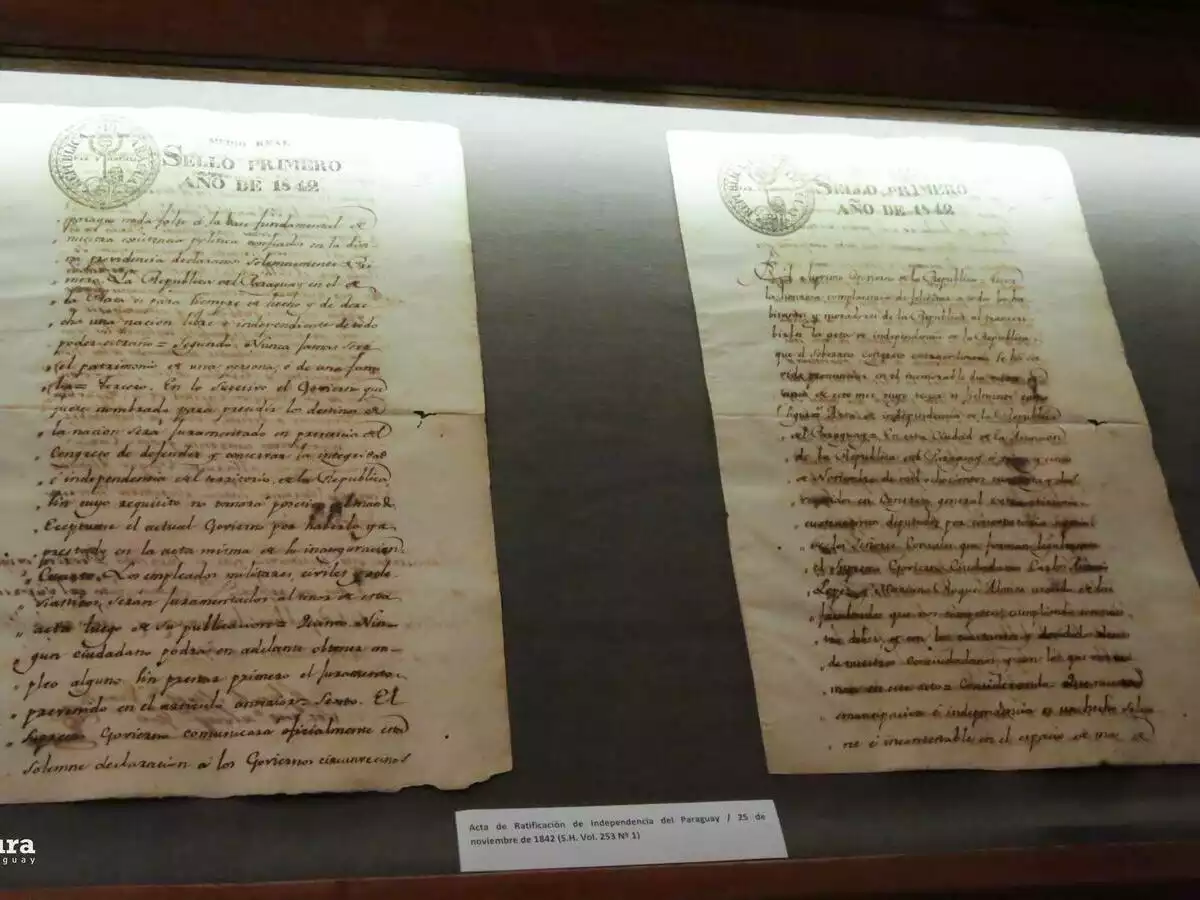 REPUBLICA
MEDIO REAL
SELLO PRIMERO
AÑO DE 1842
porque nada falte á la base fundamental de
nuestra existencia politica confiados en la divi
na providencia declaramos solemnemente Pri
mero. La Republica del Paraguay en el de
la Plata es para siempre de hecho y de dere
cho una nacion libre é independiente de todo
poder estraño = Segundo. Nunca jamas será
el patrimonio de una persona, ó de una fami
lia = Tercero. En lo sucesivo el Govierno que
fuese nombrado para presidir los destinos de
la nacion será juramentado en presencia del
Congreso de defender y conservar la integridad
é independencia del territorio de la Republica
sin cuyo requisito no tomará posesion del mando.
Eceptuase el actual Govierno por haberlo ya
prestado en la acta misma de su inauguracion.
Cuarto. Los empleados militares, civiles y ecle
siasticos seran juramentados al tenor de esta
acta luego de su publicacion = Quinto. Nin
gun ciudadano podrá en adelante obtener em
pleo alguno sin prestar primero el juramento
prevenido en el articulo anterior = Sexto. El
Supremo Govierno comunicará oficialmente esta
solemne declaracion á los Goviernos circunvecinos
REPUBLICA
SELLO PRIMERO
AÑO DE 1842
El Supremo Govierno de la Republica tiene
la complacencia de felicitar á todos los ha
bitantes y moradores de la Republica al transcri
birles la acta de independencia de la Republica,
que el soberano congreso extraordinario se ha
pronunciar en el memorable dia
de este mes cuyo tenor es
Acta de independencia de la Republica
del Paraguay. En esta Ciudad de la Asuncion
de la Republica del Paraguay á veinte y cinco
de Noviembre de mil ochocientos cuarenta y dos
reunidos en Congreso general extraordinario
cuatrocientos diputados por convocatoria especial
de los Señores Consules que forman legalmente
el Supremo Govierno Ciudadanos Carlos Antonio
Lopez y Mariano Roque Alonso usando de las
facultades que nos competen, cumpliendo
deber, y con los constantes y decididos deseos
de nuestros conciudadanos, y con los que
man en este acto = Considerando. Que nuestra
emancipacion é independencia es un hecho solem
ne é incontestable en el espacio de mas de
Acta de Ratificación de Independencia del Paraguay / 25 de
noviembre de 1842 (S.H. Vol. 253 Nº 1)
ura
guay